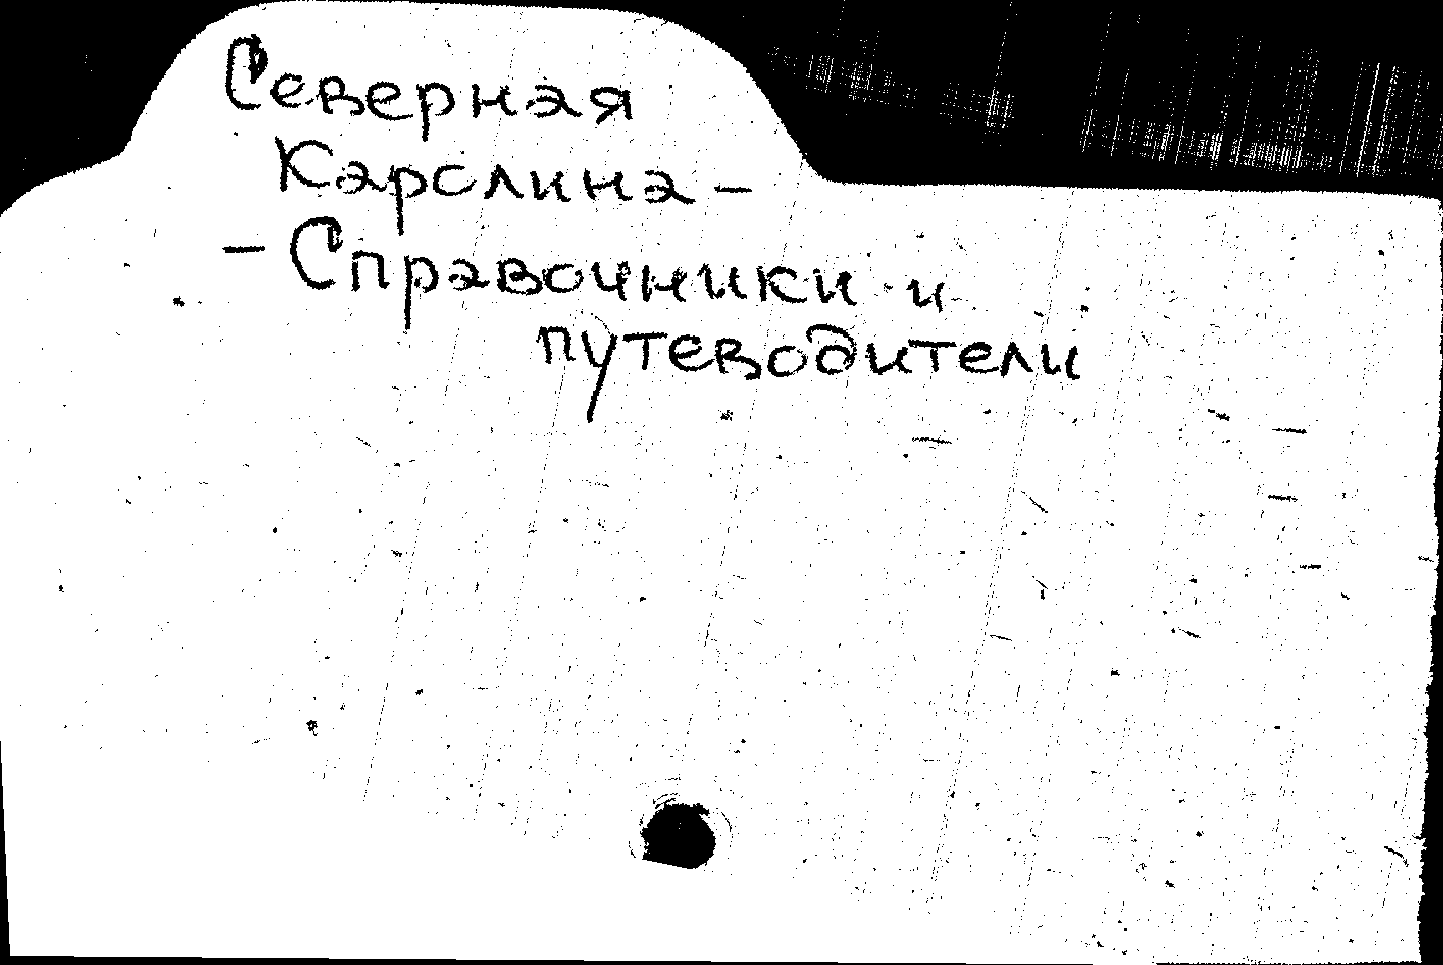 Северная
Каролина -
- Справочники и
путеводители